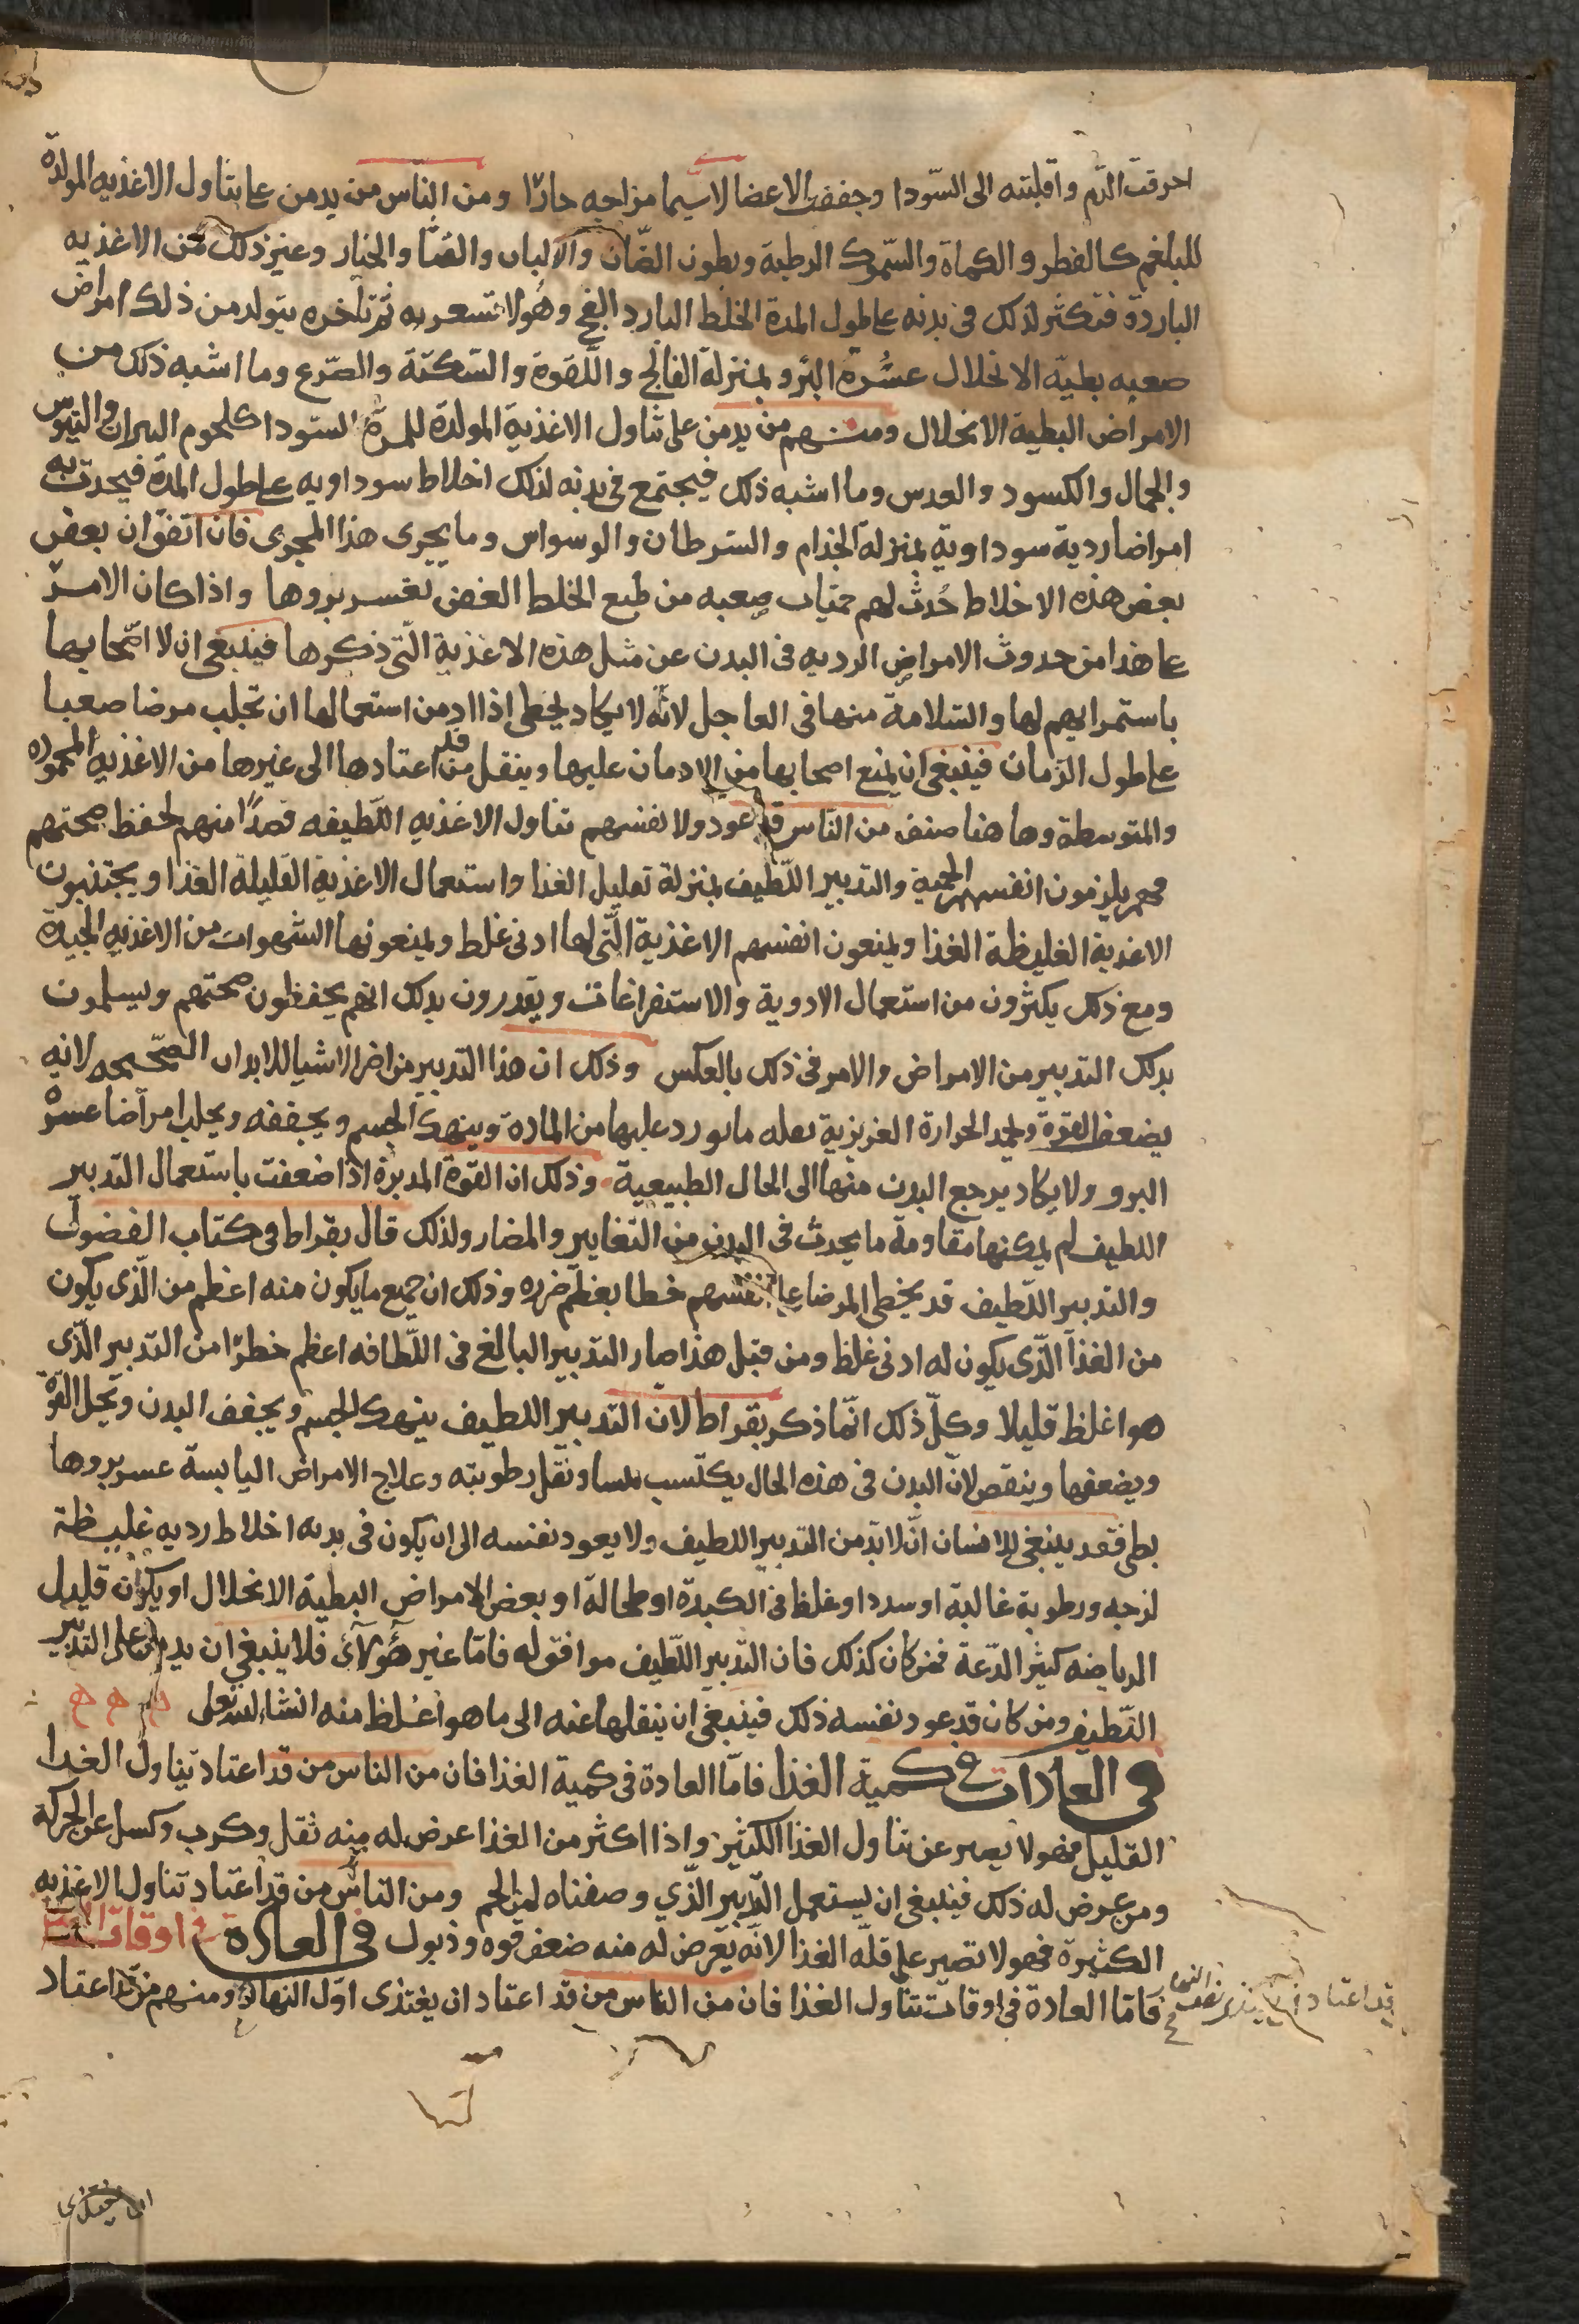 احرقت الدّم واقلبته الى السّودا وجففت الاعضا لاسيما مزاجه حارّا ومن النّاس من يدمن عا بتناول الاغذيه المولدة
للبلغم كالفطر والكماة والسّموك الرطبة وبطون الضّان والالبان والقثّا والخيار وغيرذلك من الاغذيه
الباردة فتكثر لذلك فى بدنه عاطول المدة الخلط البارد الفج وهولا تسعر به ثم تأخره يتولد من ذلك امراض
صعبه بطيّة الانحلال عسُرة البرو بمنزلة الفالج واللّقوة والسّكتة والصّرع وما اشبه ذلك من
الامراض البطية الانحلال ومنهم من يدمن على تناول الاغذية المولدة للمرّة السّودا كلحوم البيران والتيوس
والجمال والكسود والعدس وما اشبه ذلك فيجتمع فى بدنه لذلك اخلاط سوداويه عاطول المدة فيحدث به
امراضا ردية سوداوية بمنزلة الجذام والسّرطان والوسواس وما يجرى هذا المجرى فان اتفق ان بعفن
بعض هذه الاخلاط حُدث لهم حمّيات صعبه من طبع الخلط العفن تعسر بروها واذا كان الامر
عا هذا من حدوث الامراض الرديه فى البدن عن مثل هذه الاغذية الّتى ذكرها فينبغى ان لا اصّحابها
باستمرايهم لها والسّلامة منها فى العاجل لانّه لا يكاد يخطى اذا ادمن استعمالها ان تجلب مرضا صعبا
عاطول الزّمان فينبغى ان يمنع اصحابها من الادمان عليها وينقل من قد اعتادها الى غيرها من الاغذيه المحموده
والمتوسطة وها هنا صنف من الناس قد عودو لانفسهم تناول الاغذيه اللّطيفه قصدًا منهم لحفظ صحتهم
فهم يلزمون انفسهم الحمية والتدبير اللّطيف بمنزلة تعليل الغذا واستعمال الاغذية القليلة الغذا ويجتنبون
الاغذية الغليظة الغذا ويمنعون انفسهم الاغذية الّتى لها ادنى غلط ويمنعونها الشهوات من الاغذيه الجيدة
ومع ذلك يكثرون من استعمال الادوية والاستفراغات ويقدرون بذلك انهم يحفظون صحتهم ويسلمون
بذلك التدبير من الامراض والامر فى ذلك بالعكس وذلك ان هذا التدبير من اضر الاشيا للابدان الصّحيحه لانه
يضعف القوة ويخمد الحرارة الغريزية بعله ما يورد عليها من المادة وينهك الجسم ويجففه ويجلب امراضا عسرة
البرو ولا يكاد يرجع البدن منها الى الحال الطبيعية وذلك ان القوة المدبرة اذا ضعفت باستعمال التدبير
اللطيف لم يمكنها مقاومة ما يحدث فى البدن من التغايير والمضار ولذلك قال بقراط فى كتاب الفضول
والتدبير اللّطيف قد يخطى المرضا عا انفسهم خطا يعظم ضرره وذلك ان جميع ما يكون منه اعظم من الّذى يكون
من الغذا الّذى يكون له ادنى غلظ ومن قبل هذا صار التدبير البالغ فى اللّطافه اعظم خطرًا من التدبير الّذى
هوا غلظ قليلا وكلّ ذلك انّما ذكر بقراط لان التدبير اللطيف ينهك الجسم ويجفف البدن ويحل القوة
ويضعفها وينقص لانّ البدن فى هذه الحال يكتسب يبسا وتقل رطوبته وعلاج الامراض اليابسة عسر بروها
بطى فقد ينبغى للانسان انّ لا بدّ من التدبير اللطيف ولا يعود نفسه الى ان يكون فى بدنه اخلاط رديه غليظة
لزجه ورطوبة غالبة او سددا وغلظ فى الكبدة او طحالة او بعض الامراض البطية الانحلال او يكون قليل
الرياضه كثير الدّعة فمن كان كذلك فان التدبير اللّطيف موافق له فامّا غير هولآئ فلا ينبغى ان يدمن على التدبير
اللّطيف ومن كان قد عود نفسه ذلك فينبغى ان ينقلها عنه الى ما هو اغلظ منه انشا الله تعلى ه ه ه
فى العادات فى كمية الغذا فامّا العادة فى كمية الغذا فان من الناس من قد اعتاد تناول الغذا
القليل فهو لا يصبر عن تناول الغذا الكثير واذا اكثر من الغذا عرض له منه ثقل وكرب وكسل عن الحركة
ومن عرض له ذلك فينبغى ان يستعمل التدبير الّذي وصفناه لمن الحم ومن الناس من قد اعتاد تناول الاغذيه
الكثيرة فهو لا تصبر على قلّه الغذا لانّه يعرض له منه ضعف قوه وذبول فى العادة فى اوقات
فامّا العادة فى اوقات تناول الغذا فان من الناس من قد اعتاد ان يغتذى اوّل النهار ومنهم من قد اعتاد
قد اعتاد ان يغتذى نصف النهار
ان يغتذى